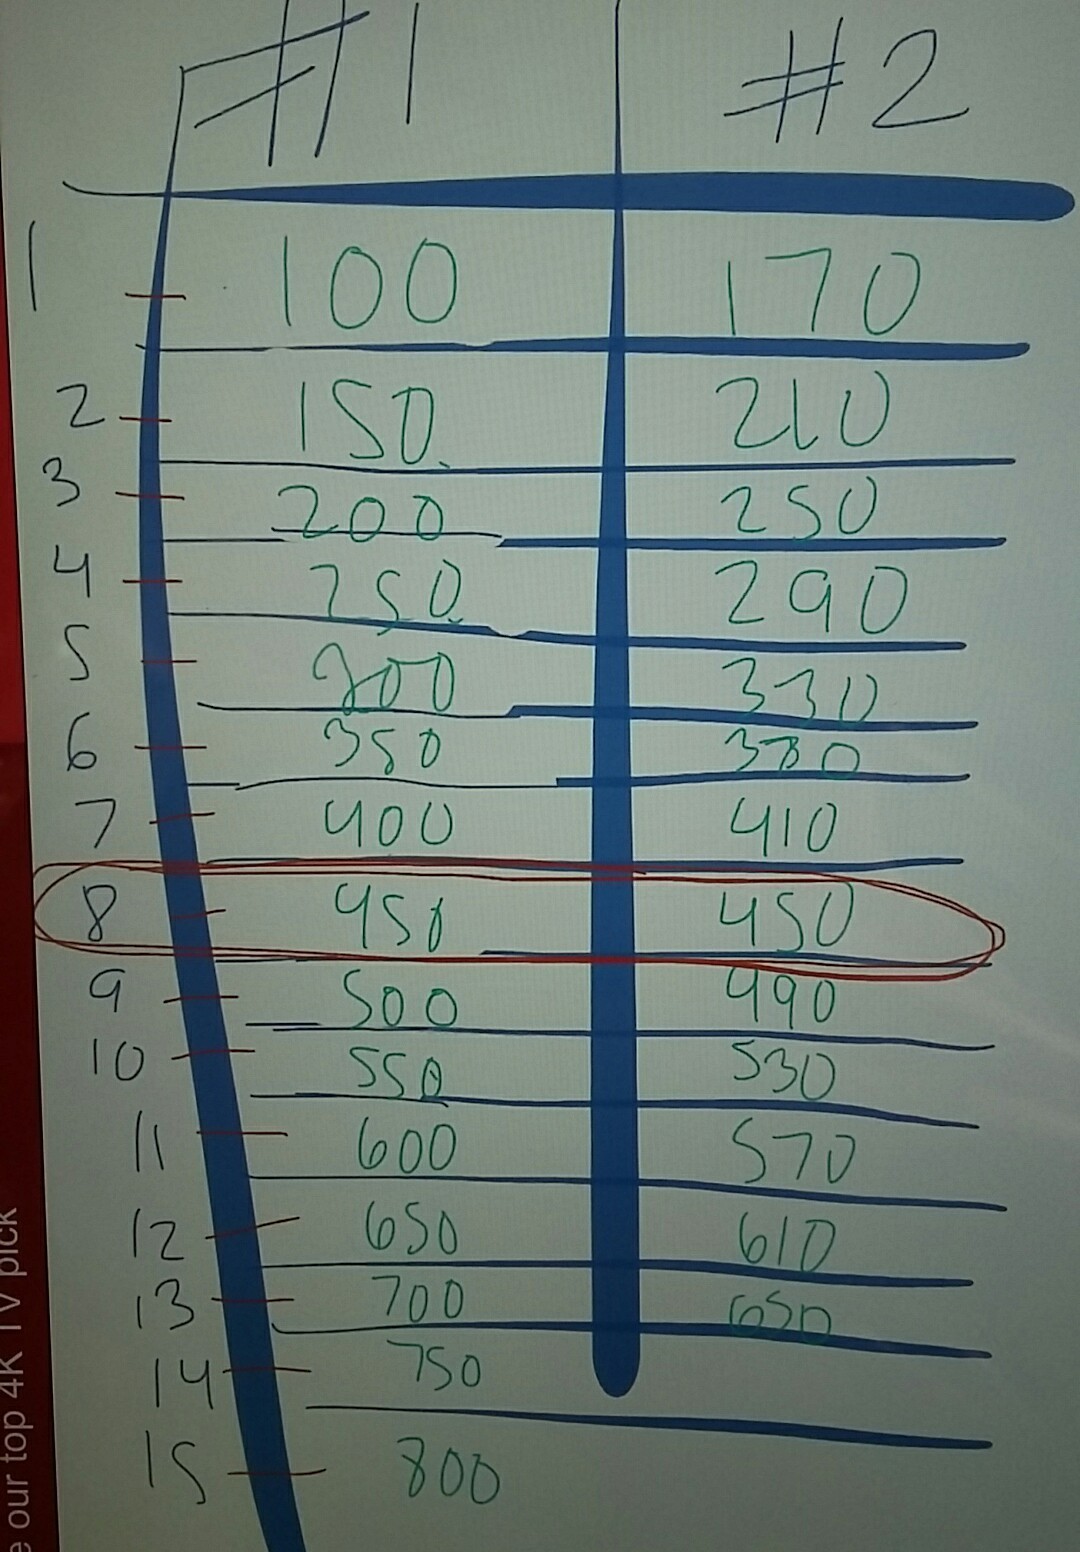 #1 #2
1 100 170
2 150 210
3 200 250
4 250 290
5 300 330
6 350 370
7 400 410
8 450 450
9 500 490
10 550 530
11 600 570
12 650 610
13 700 650
14 750
15 800
e our top 4K TV pick